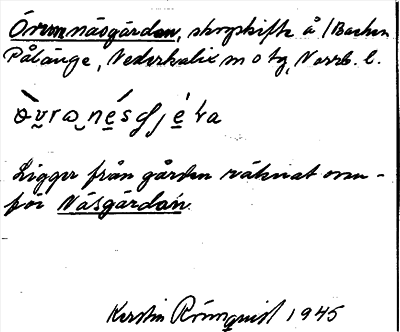 Övernäsgården, skogskifte å /Backen
Pålänge, Nederkalix sn o tg, Norrb. l.
Ligger från gården räknat ovan-
för Näsgården.
Kerstin Rönnqvist 1945